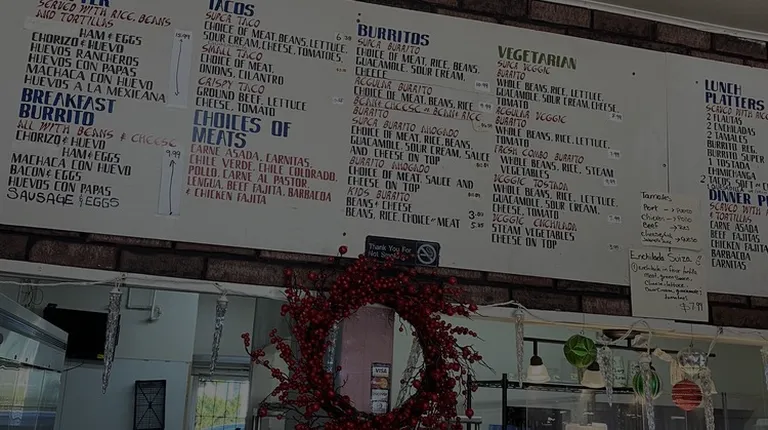 SERVED WITH RICE, BEANS
AND TORTILLAS
HAM & EGGS
CHORIZO & HUEVO
HUEVOS RANCHEROS
HUEVOS CON PAPAS
MACHACA CON HUEVO
HUEVOS A LA MEXICANA
BREAKFAST
BURRITO
ALL WITH BEANS & CHEESE
CHORIZO & HUEVO
HAM & EGGS
MACHACA CON HUEVO
BACON & EGGS
HUEVOS CON PAPAS
SAUSAGE & EGGS
9.99
TACOS
SUPER TACO
CHOICE OF MEAT, BEANS, LETTUCE,
SOUR CREAM, CHEESE, TOMATOES,
SMALL TACO
CHOICE OF MEAT,
ONIONS, CILANTRO
CRISPY TACO
GROUND BEEF, LETTUCE
CHEESE, TOMATO
CHOICES OF
MEATS
CARNE ASADA, CARNITAS,
CHILE VERDE, CHILE COLORADO,
POLLO, CARNE AL PASTOR,
LENGUA, BEEF FAJITA, BARBACOA
& CHICKEN FAJITA
BURRITOS
SUPER BURRITO
CHOICE OF MEAT, RICE, BEANS,
GUACAMOLE, SOUR CREAM,
CHEESE
REGULAR BURRITO
CHOICE OF MEAT, BEANS, RICE
BEAN & CHEESE & RICE
BURRITO
SUPER BURRITO MOHADO
CHOICE OF MEAT, RICE, BEANS,
GUACAMOLE, SOUR CREAM, SAUCE
AND CHEESE ON TOP
BURRITO MOHADO
CHOICE OF MEAT, SAUCE AND
CHEESE ON TOP
KIDS BURRITO
BEANS & CHEESE
BEANS, RICE, CHOICE OF MEAT
VEGETARIAN
SUPER VEGGIE
BURRITO
WHOLE BEANS, RICE, LETTUCE,
GUACAMOLE, SOUR CREAM, CHEESE,
TOMATO
REGULAR VEGGIE
BURRITO
WHOLE BEANS, RICE, LETTUCE,
TOMATO
FRESH COMBO BURRITO
WHOLE BEANS, RICE, STEAM
VEGETABLES
VEGGIE TOSTADA
WHOLE BEANS, RICE, LETTUCE,
GUACAMOLE, SOUR CREAM,
CHEESE, TOMATO
VEGGIE ENCHILADA
STEAM VEGETABLES
CHEESE ON TOP
LUNCH
PLATTERS
SERVED WITH RICE
2 FLAUTAS
2 ENCHILADAS
2 TAMALES
BURRITO REG
BURRITO SUPER
1 TOSTADA
CHIMICHANGA
DINNER
& TORTILLAS
CARNE ASADA
BEEF FAJITAS
CHICKEN FAJITA
BARBACOA
CARNITAS
Tamales
Enchilada Suiza
$7.99
Thank You For
Not Smoking
VISA